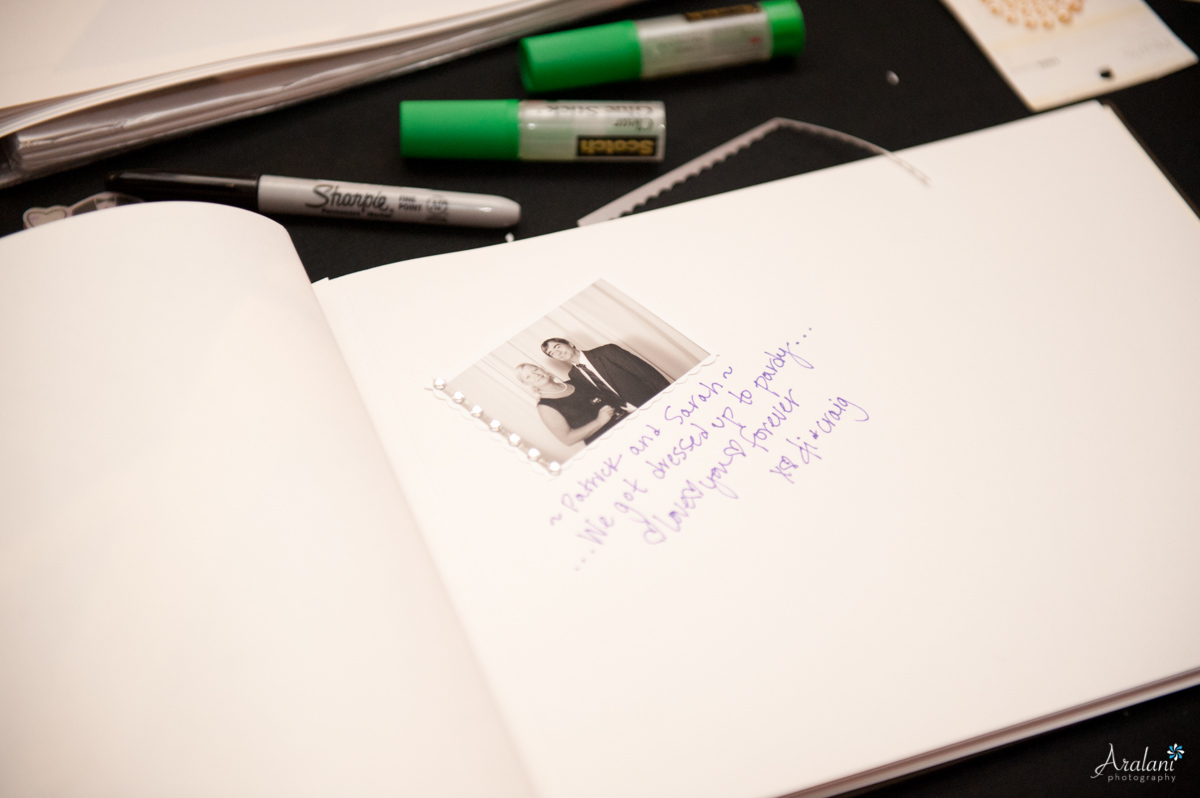 Scotch
Scotch
Clear
Glue Stick
Sharpie
FINE
POINT
Permanent Marker
~Patrick and Sarah~
...We got dressed up to pardy...
love you forever
di + craig
Aralani
photography